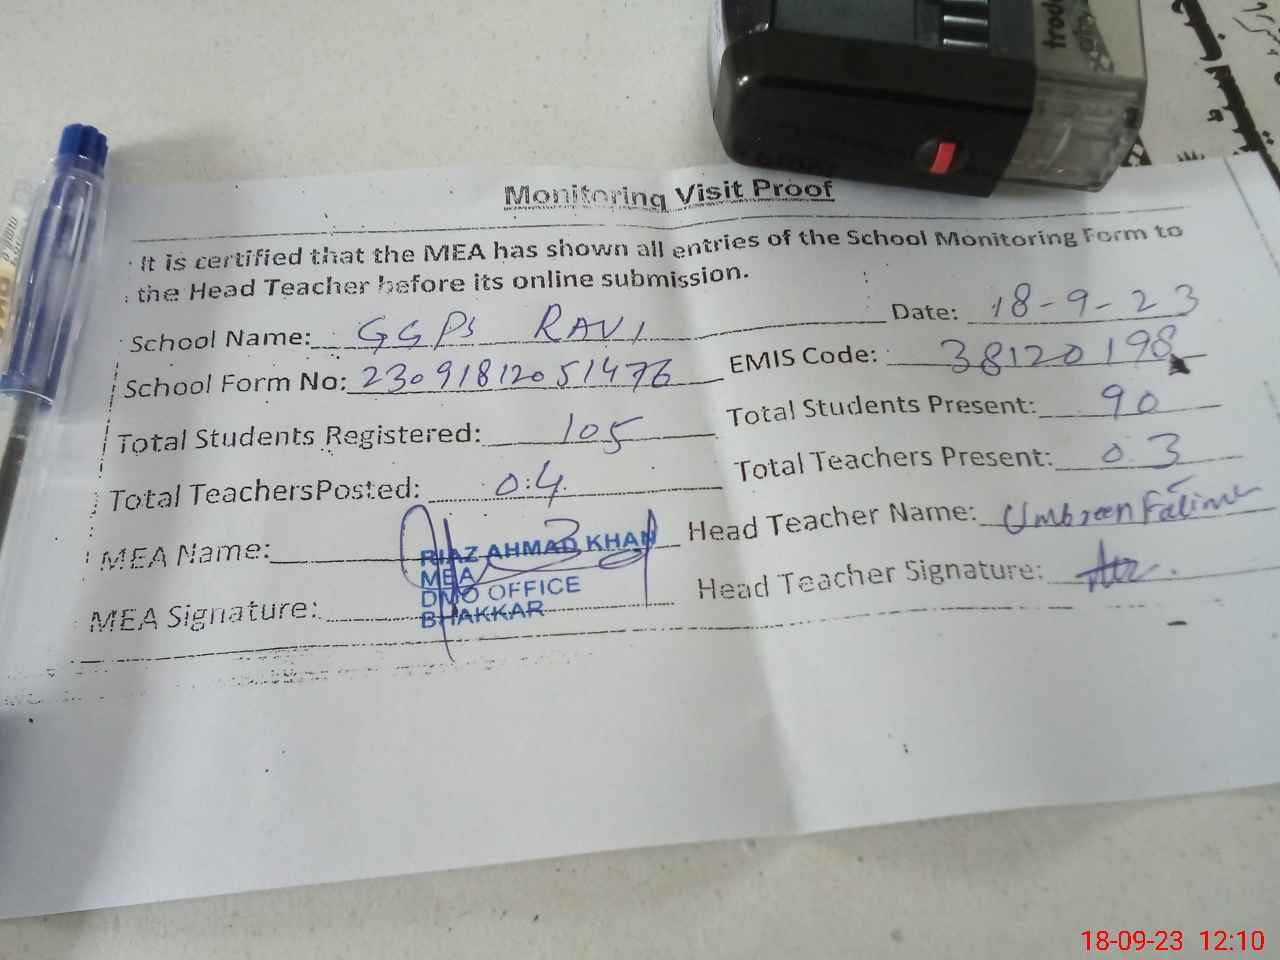 Monitoring Visit Proof
It is certified that the MEA has shown all entries of the School Monitoring Form to
the Head Teacher before its online submission.
School Name: GGPS RAVI Date: 18-9-23
School Form No: 23091812051476 EMIS Code: 38120198
Total Students Registered: 105 Total Students Present: 90
Total Teachers Posted: 04 Total Teachers Present: 03
MEA Name: Head Teacher Name: Umbreen Fatima
RIAZ AHMAD KHAN
MEA
DMO OFFICE
BHAKKAR
MEA Signature: Head Teacher Signature:
18-09-23 12:10